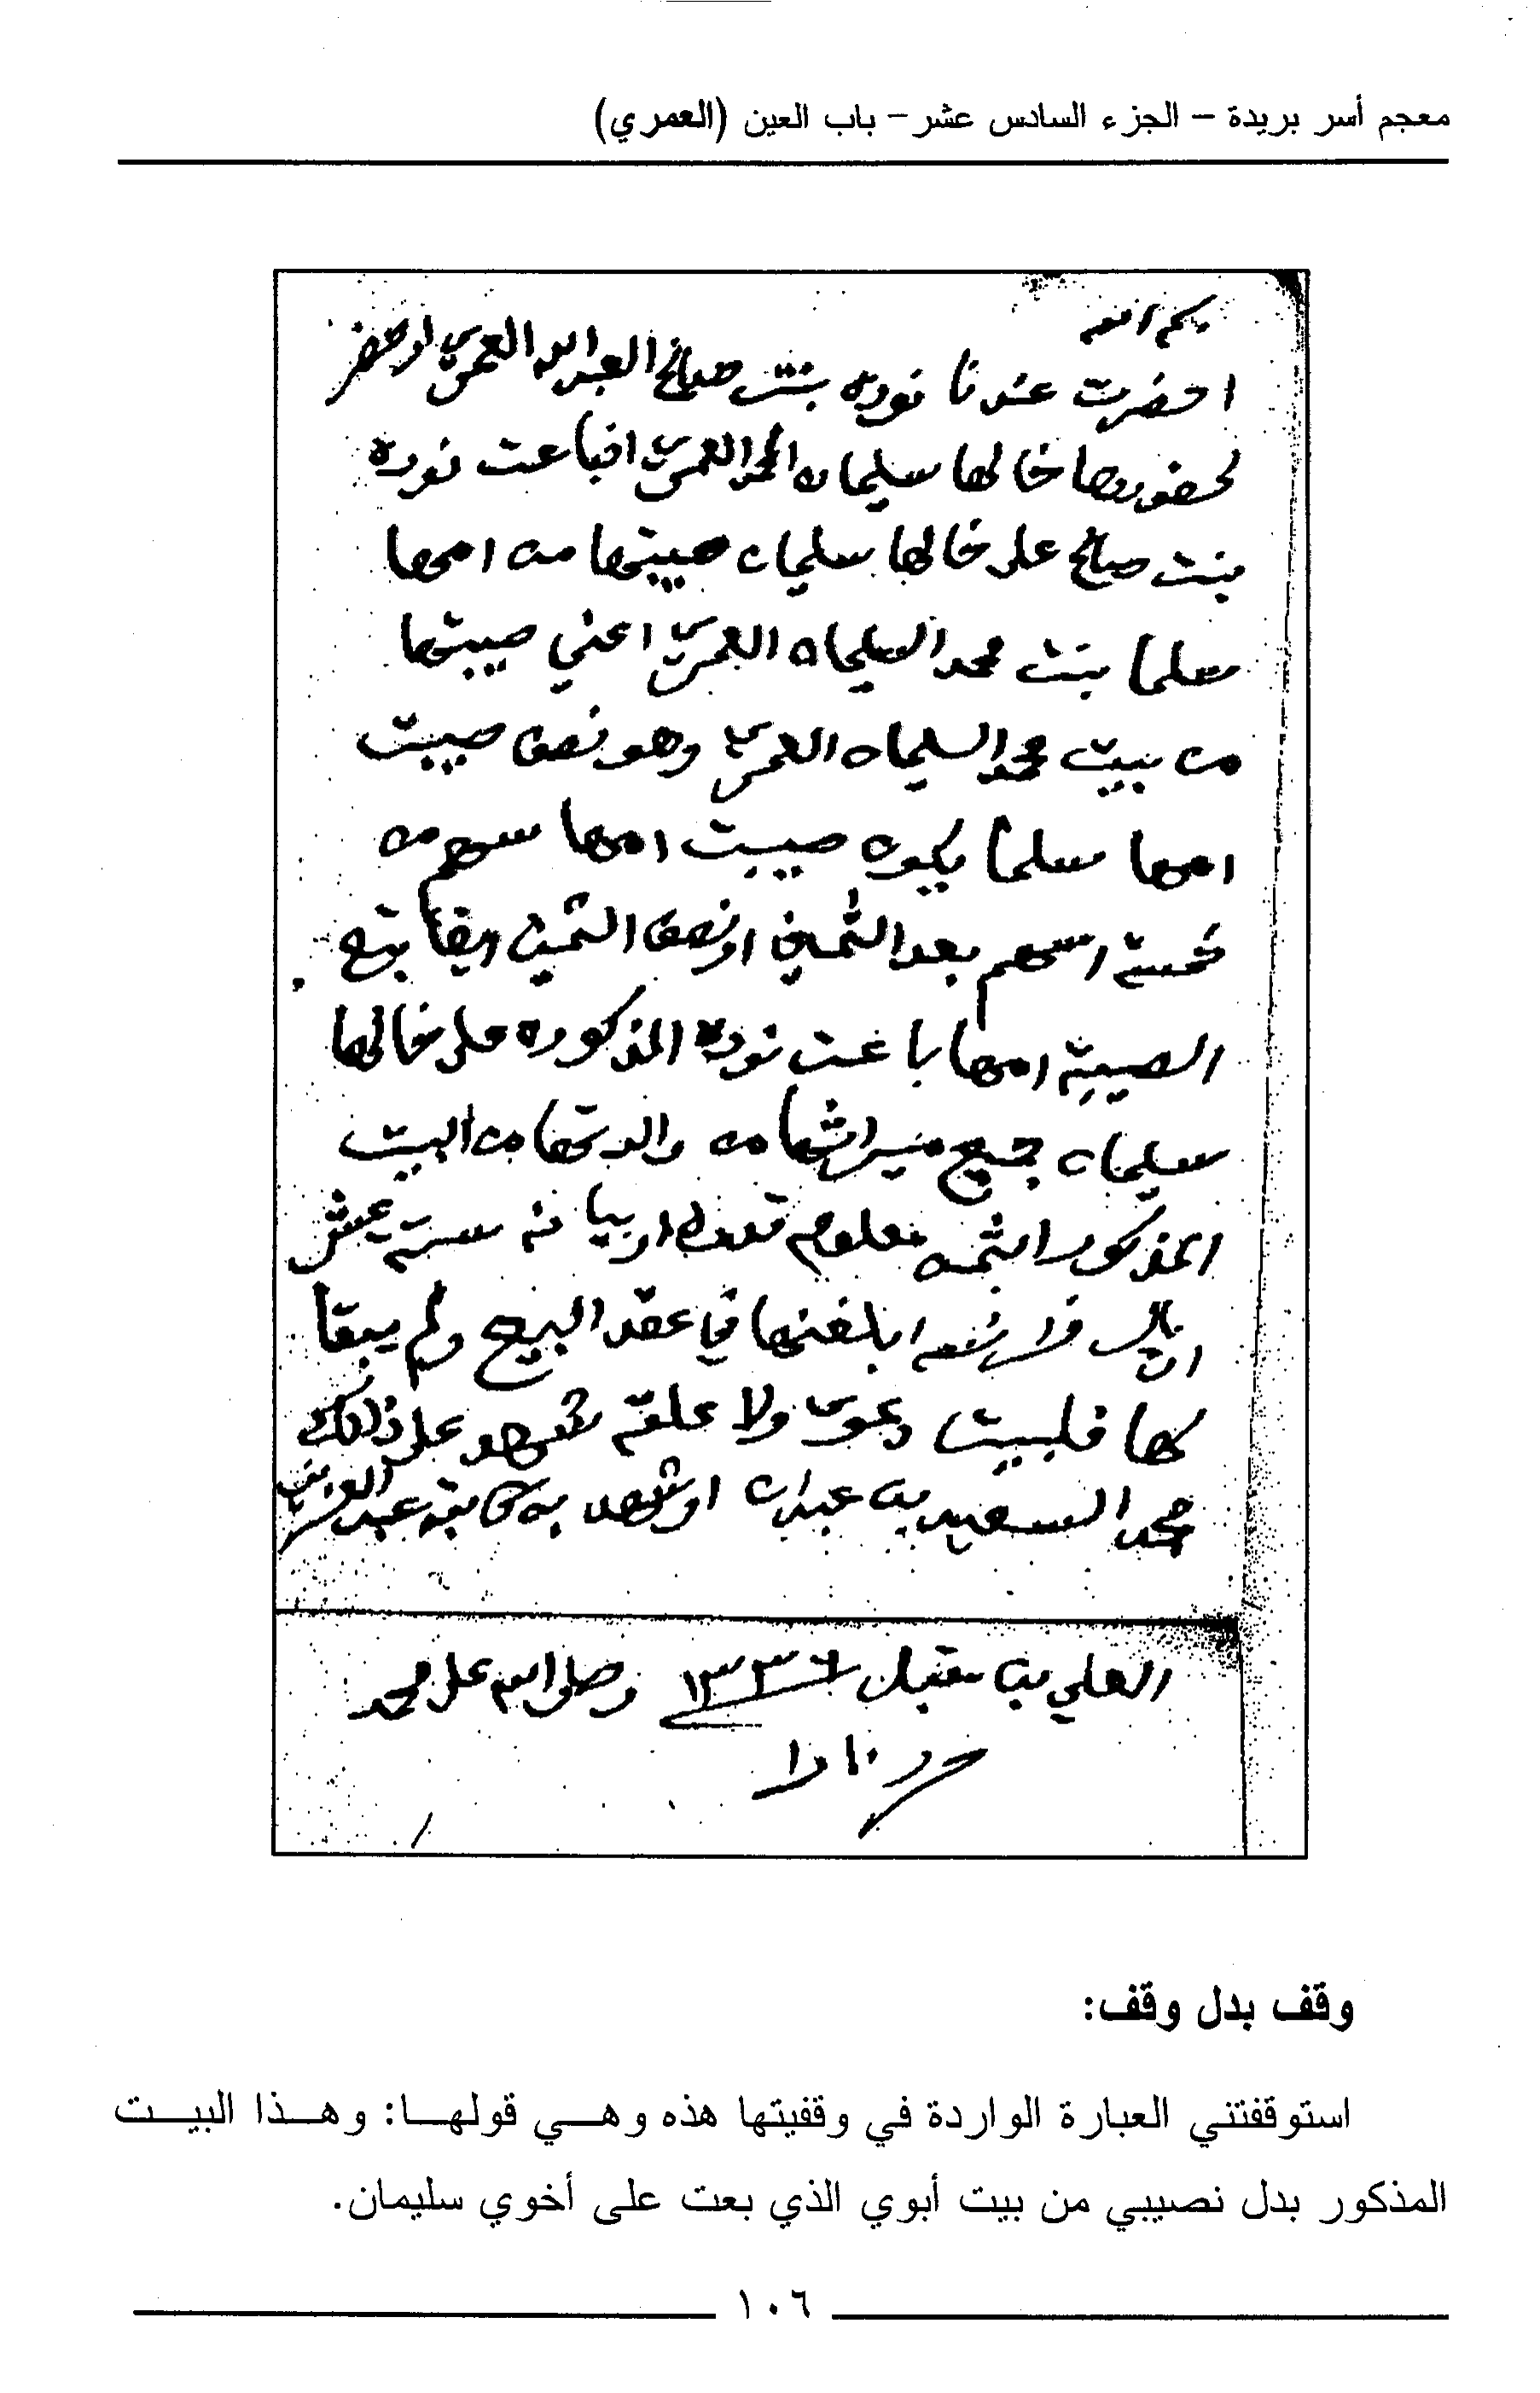 معجم أسر بريدة – الجزء السادس عشر – باب العين (العمري)
بسم الله
احضرت عندنا نوره بنت صالح العبدالله العمري اوحضر
لحضورها خالها سليمان المحمد العمري افباعت نوره
بنت صالح على خالها سليمان صيبتها من امها
سلما بنت محمد السليمان العمري اعني صيبتها
من بيت محمد السليمان العمري وهو نصف صيبت
امها سلما يكون صيبت امها سهم من
خمسة اسهم بعد الثمين اونصف الثمين ايضا يتبع
الصيبة امها باعت نوره المذكوره على خالها
سليمان جميع ميراثها من والدتها من البيت
المذكور ابثمن معلوم قدره اربيانه ستة عشر
اريال فرانسه ابلغنها في عقد البيع ولم يبقا
لها فلبيت دعوى ولا علقه شهد على ذلك
محمد السعيد بن عبدان اوشهد به كاتبه عبدالعزيز
العلي بن مقبل ١٣٣٦ وصلى الله على محمد
وقف بدل وقف:
استوقفتني العبارة الواردة في وقفيتها هذه وهي قولها: وهذا البيت
المذكور بدل نصيبي من بيت أبوي الذي بعت على أخوي سليمان.
١٠٦